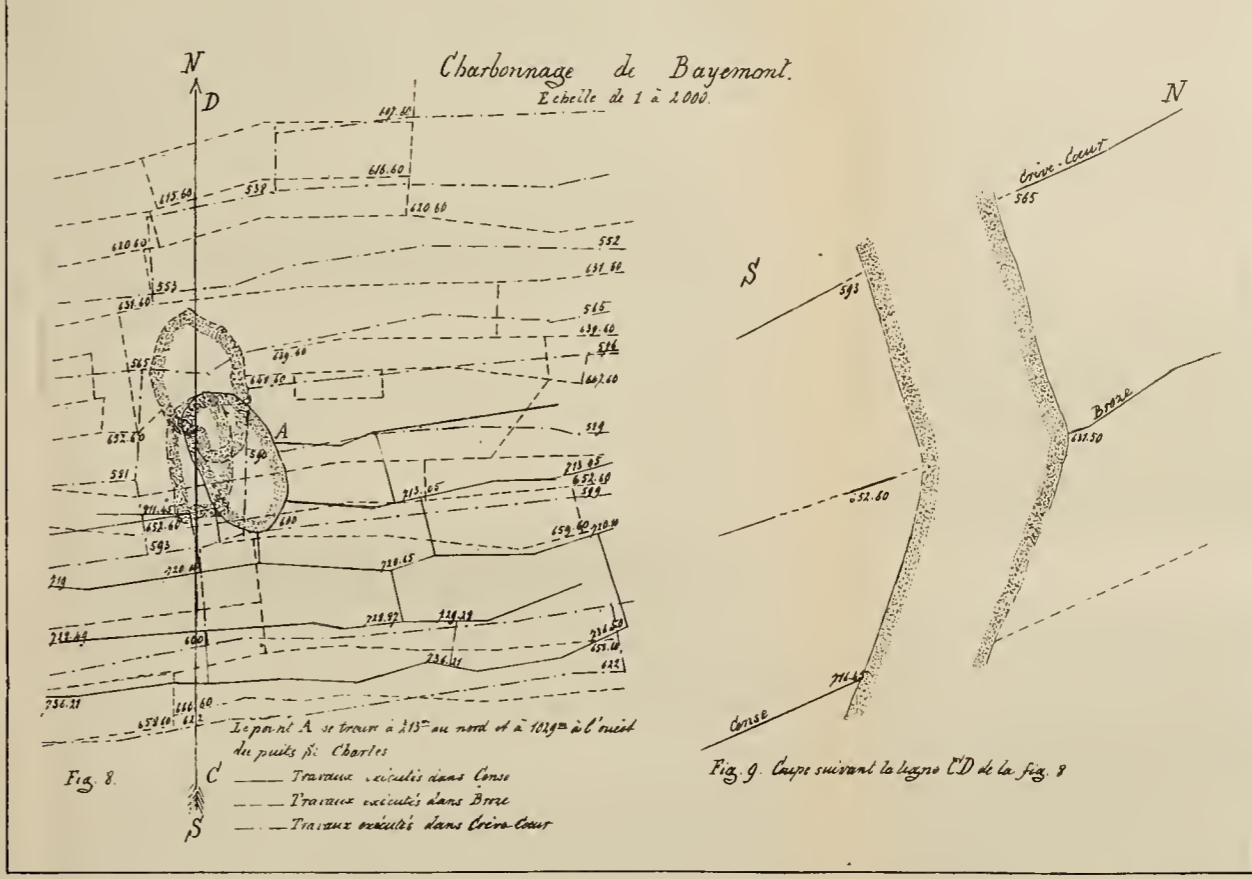 Charbonnage de Bayemont.
Echelle de 1 à 2000.
N
D
607.60
615.60
538
616.60
620.60
620.60
552
553
631.60
631.60
565
639.60
565
639.60
586
641.60
647.60
652.60
A
579
590
581
713.05
713.05
652.60
589
711.45
652.60
600
593
659.60
720.10
719
720.65
728.49
600
728.97
729.29
736.50
736.21
658.60
622
736.21
666.60
658.60
622
Le point A se trouve à 213m au nord et à 1029m à l'ouest
du puits St Charles
Fig. 8.
C
Travaux exécutés dans Conse
Travaux exécutés dans Broze
Travaux exécutés dans Crève-Coeur
S
N
Crève-Coeur
565
S
593
Broze
631.50
652.60
716.45
Conse
Fig. 9. Coupe suivant la ligne CD de la fig. 8